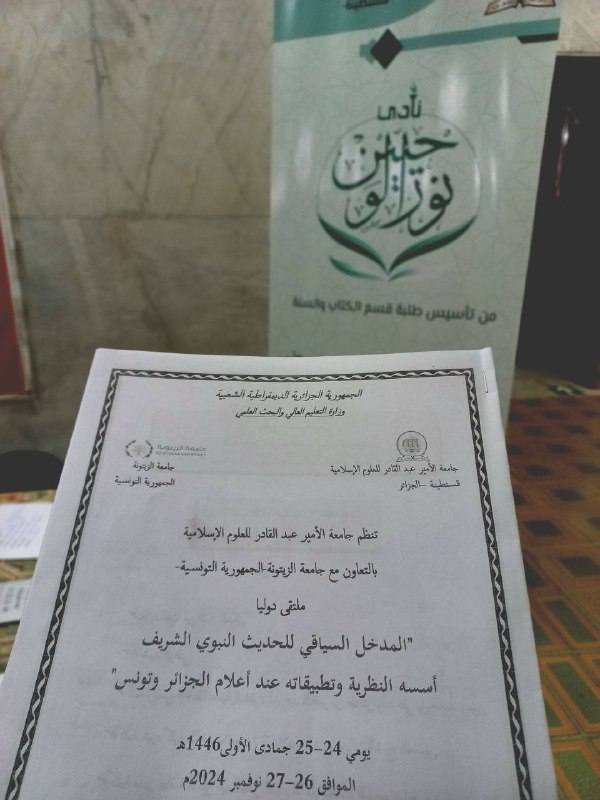 قسنطينة
نادي
نور الوحيين
من تأسيس طلبة قسم الكتاب والسنة
الجمهورية الجزائرية الديمقراطية الشعبية
وزارة التعليم العالي والبحث العلمي
جامعة الأمير عبد القادر للعلوم الإسلامية
قسنطينة -الجزائر
جامعة الزيتونة
جامعة الزيتونة
الجمهورية التونسية
تنظم جامعة الأمير عبد القادر للعلوم الإسلامية
بالتعاون مع جامعة الزيتونة-الجمهورية التونسية-
ملتقى دوليا
"المدخل السياقي للحديث النبوي الشريف
أسسه النظرية وتطبيقاته عند أعلام الجزائر وتونس"
يومي 24-25 جمادى الأولى1446هـ
الموافق 26-27 نوفمبر 2024م